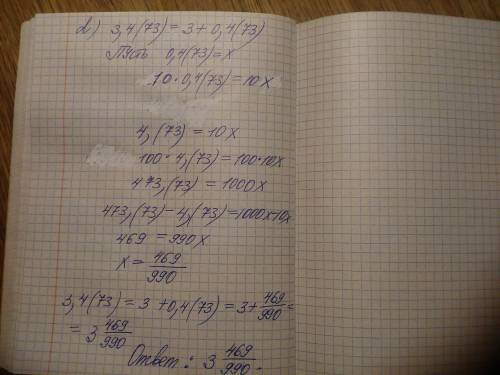 д) 3,4(73) = 3 + 0,4(73)
Пусть 0,4(73) = x
10 · 0,4(73) = 10x
4,(73) = 10x
100 · 4,(73) = 100 · 10x
473,(73) = 1000x
473,(73) - 4,(73) = 1000x-10x
469 = 990x
x = 469/990
3,4(73) = 3 + 0,4(73) = 3 + 469/990 =
= 3 469/990
Ответ: 3 469/990.